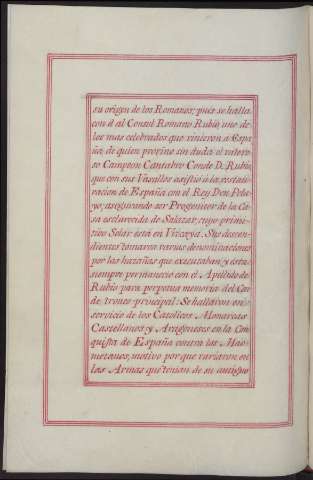 su origen de los Romanos; pues se halla
con él al Consul Romano Rubio, uno de
los mas celebrados que vinieron a Espa
ña, de quien provino sin duda el valero
so Campeon Cantabro Conde D. Rubio,
que con sus Vasallos asistió a la restau
racion de España con el Rey Don Pela
yo, asegurando ser Progenitor de la Ca
sa esclarecida de Salazar, cuyo primi
tivo Solar está en Vizcaya. Sus descen
dientes tomaron varias denominaciones
por las hazañas que executaban, y esta
siempre permaneció con el Apellido de
Rubio para perpetua memoria del Con
de tronco principal: Se hallaron en
servicio de los Catolicos Monarcas
Castellanos, y Aragoneses en la Con
quista de España contra los Maho
metanos, motivo por que variaron en
las Armas que tenian de su antiguo